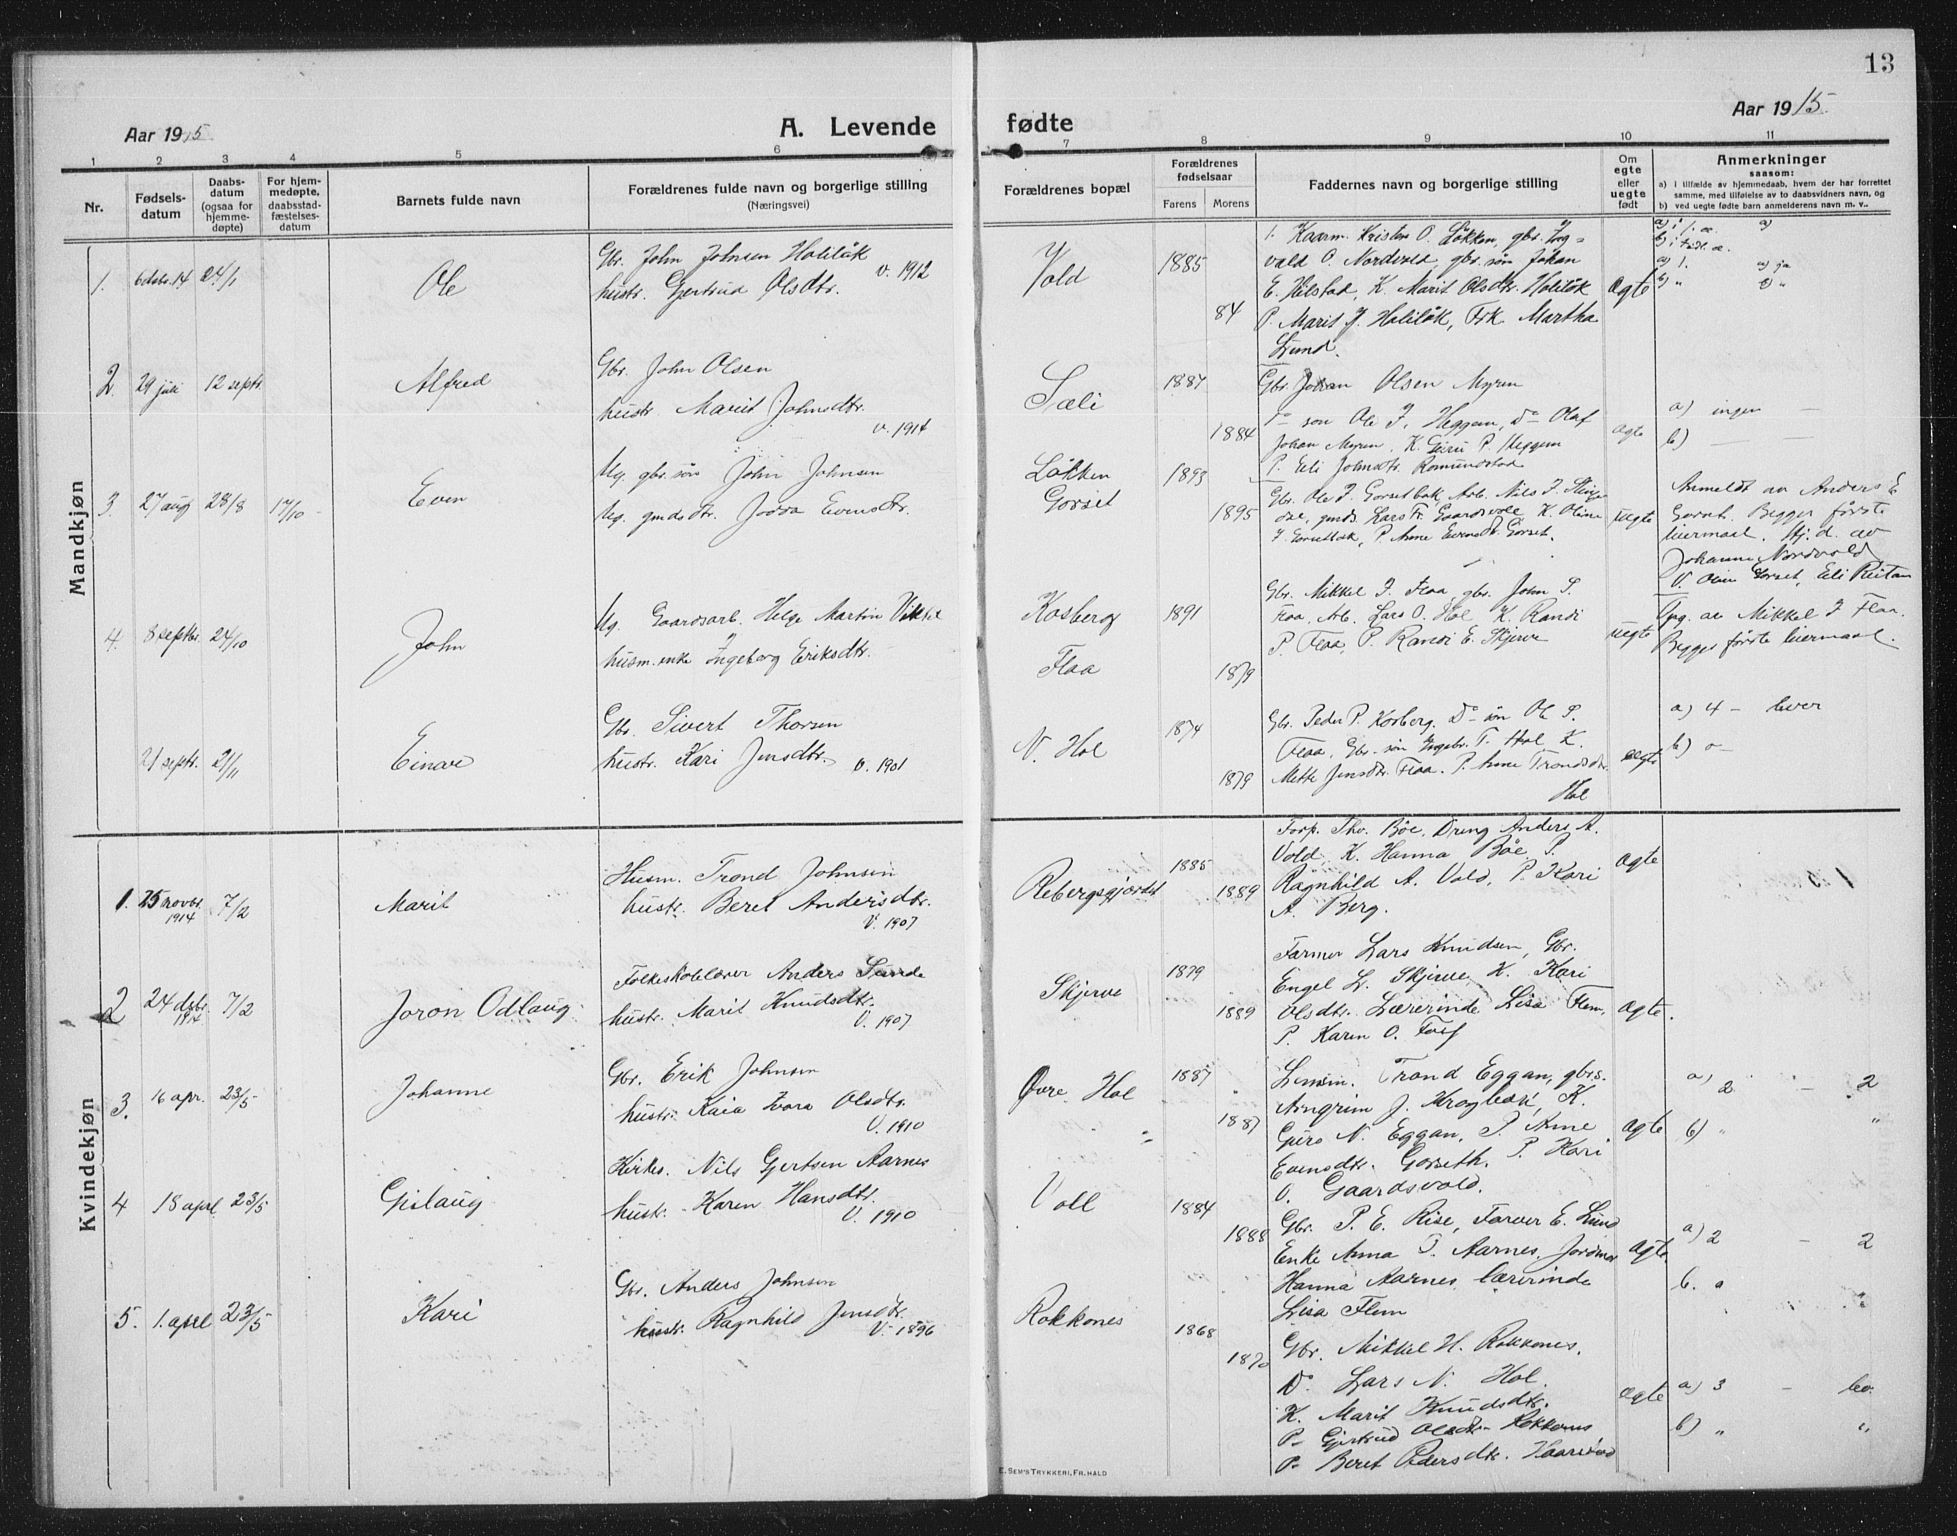 13
Aar 1915
A. Levende
fødte
Aar 1915.
1 2 3 4 5 6 7 8 9 10 11
Nr.
Fødsels-
datum
Daabs-
datum
(ogsaa for
hjemme-
døpte)
For hjem-
medøpte,
daabsstad-
fæstelses-
datum
Barnets fulde navn
Forældrenes fulde navn og borgerlige stilling
(Næringsvei)
Forældrenes bopæl
Forældrenes
fødselsaar
Farens Morens
Faddernes navn og borgerlige stilling
Om
egte
eller
uegte
født
Anmerkninger
saasom:
a) i tilfælde av hjemmedaab, hvem der har forrettet
samme, med tilføielse av to daabsvidners navn, og
b) ved uegte fødte barn anmelderens navn m. v..
Mandkjøn
1. 6 dsbr. 14 24/1 Ole
Gbr. John Johnsen Holiløk
hustr. Gjertrud Olsdtr. v. 1912
Vold 1885 84
1. Kaarm. Kristen O. Løkken, gbr. Ing-
vald O. Nordvold, gbr. søn Johan
E. Hilstad, K. Marit Olsdtr. Holiløk
P. Marit J. Holiløk, Frk. Martha
Lund.
Ægte
2. 29 juli 12 septr. Alfred
Gbr. John Olsen
hustr. Marit Johnsdtr.
v. 1914
Sæli 1887 1884
Gbr. Johan Olsen Myren
Do søn Ole J. Heggem, Do Olaf
Johan Myren, K. Guru P. Heggem
P. Eli Johnsdtr. Romundstad
ægte
a) ingen —
b) —
3. 27 aug 28/8 17/10 Even
Ug. gbr. søn John Johnsen
Ug. gmdsdtr. Jodda Evensdtr.
Løkken
Gorset
1893 1895
Gbr. Ole J. Gorsetbak, Arb. Nils J.
gmds. Lars Fr. Gaardsvold K. Oline
J. Gorsetbak, P. Anne Evensdtr. Gorset.
uegte
Anmeldt av Anders E
Gorset. Begges første
leiermaal. Hj. d. av
Johanne Nordvold
V. Oline Gorset, Eli Reitan
4. 8 septbr. 24/10 John
Ug. Gaardsarb. Helge Martin Vikhel
husm. enke Ingeberg Eriksdtr.
Kosberg
Flaa
1891 1879
Gbr. Mikkel J. Flaa gbr. John P.
Flaa, Arb. Lars O. Hol K. Randi
P. Flaa, P. Randi E. Skjerve
uegte
Opg. av Mikkel J Flaa.
Begges første leiermaal.
21 septr. 21/11 Einar
Gbr. Sivert Thorsen
hustr. Kari Jensdtr. v. 1901
N. Hol 1874 1879
Gbr. Peder P. Kosberg. Do søn Ole P.
Flaa, Gbr. søn Ingebr. T. Hol K.
Mette Jensdtr. Flaa. P. Anne Trondsdtr.
Hol
ægte
a) 4 — lever
b) o —
Kvindekjøn
1. 25 novbr. 1914 7/2 Marit
Husm. Trond Johnsen
hustr. Beret Andersdtr.
V. 1907
Rebergsgjerdet 1885 1889
Forp. Thv. Bøe, Dreng Anders A.
Vold, K. Hanna Bøe P.
Ragnhild A. Vold, P. Kari
A. Berg.
ægte
2 24 dsbr. 1914 7/2 Joron Odlaug
Folkeskolelærer Anders Surde
hustr. Marit Knudsdtr.
V. 1907
Skjerve 1879 1889
Farmer Lars Knudsen, Gbr.
Engel L. Skjerve K. Kari
Olsdtr. Lærerinde Lisa Flem,
P. Karen O.
ægte.
3. 16 apr. 23/5 Johanne
Gbr. Erik Johnsen
hustr. Kaia Ivara Olsdtr.
V. 1910
Øvre Hol 1887 1887
Lensm. Trond Eggan, gbrs.
Arngrim J. Krogbæk, K.
Guro N. Eggan, P. Anne
Evensdtr. Gorseth. P. Kari
O. Gaardsvold.
ægte
a) 2 — 2
b) „ „
4 18 april 23/5 Gislaug
Kirkes. Nils Gjertsen Aarnes
hustr. Karen Hansdtr.
V. 1910
Voll 1884 1888
Gbr. P. E. Rise, Farver E. Lund
Enke Anna P. Aarnes, Jordmor
Hanna Aarnes, lærerinde
Lisa Flem
ægte
a) 2 — 2
b. o
5. 1. april 23/5 Kari
Gbr. Anders Johnsen
hustr. Ragnhild Jensdtr.
V. 1896
Rokkones 1868 1870
Gbr. Mikkel H. Rokkones.
Do Lars N. Hol.
K. Marit Knudsdtr.
P. Gjertrud Olsdtr. Rokkones
P. Beret Pedersdtr. Kaarstad
ægte
a) 3 — lev.
b) „ „
E. SEM'S TRYKKERI, FR.HALD